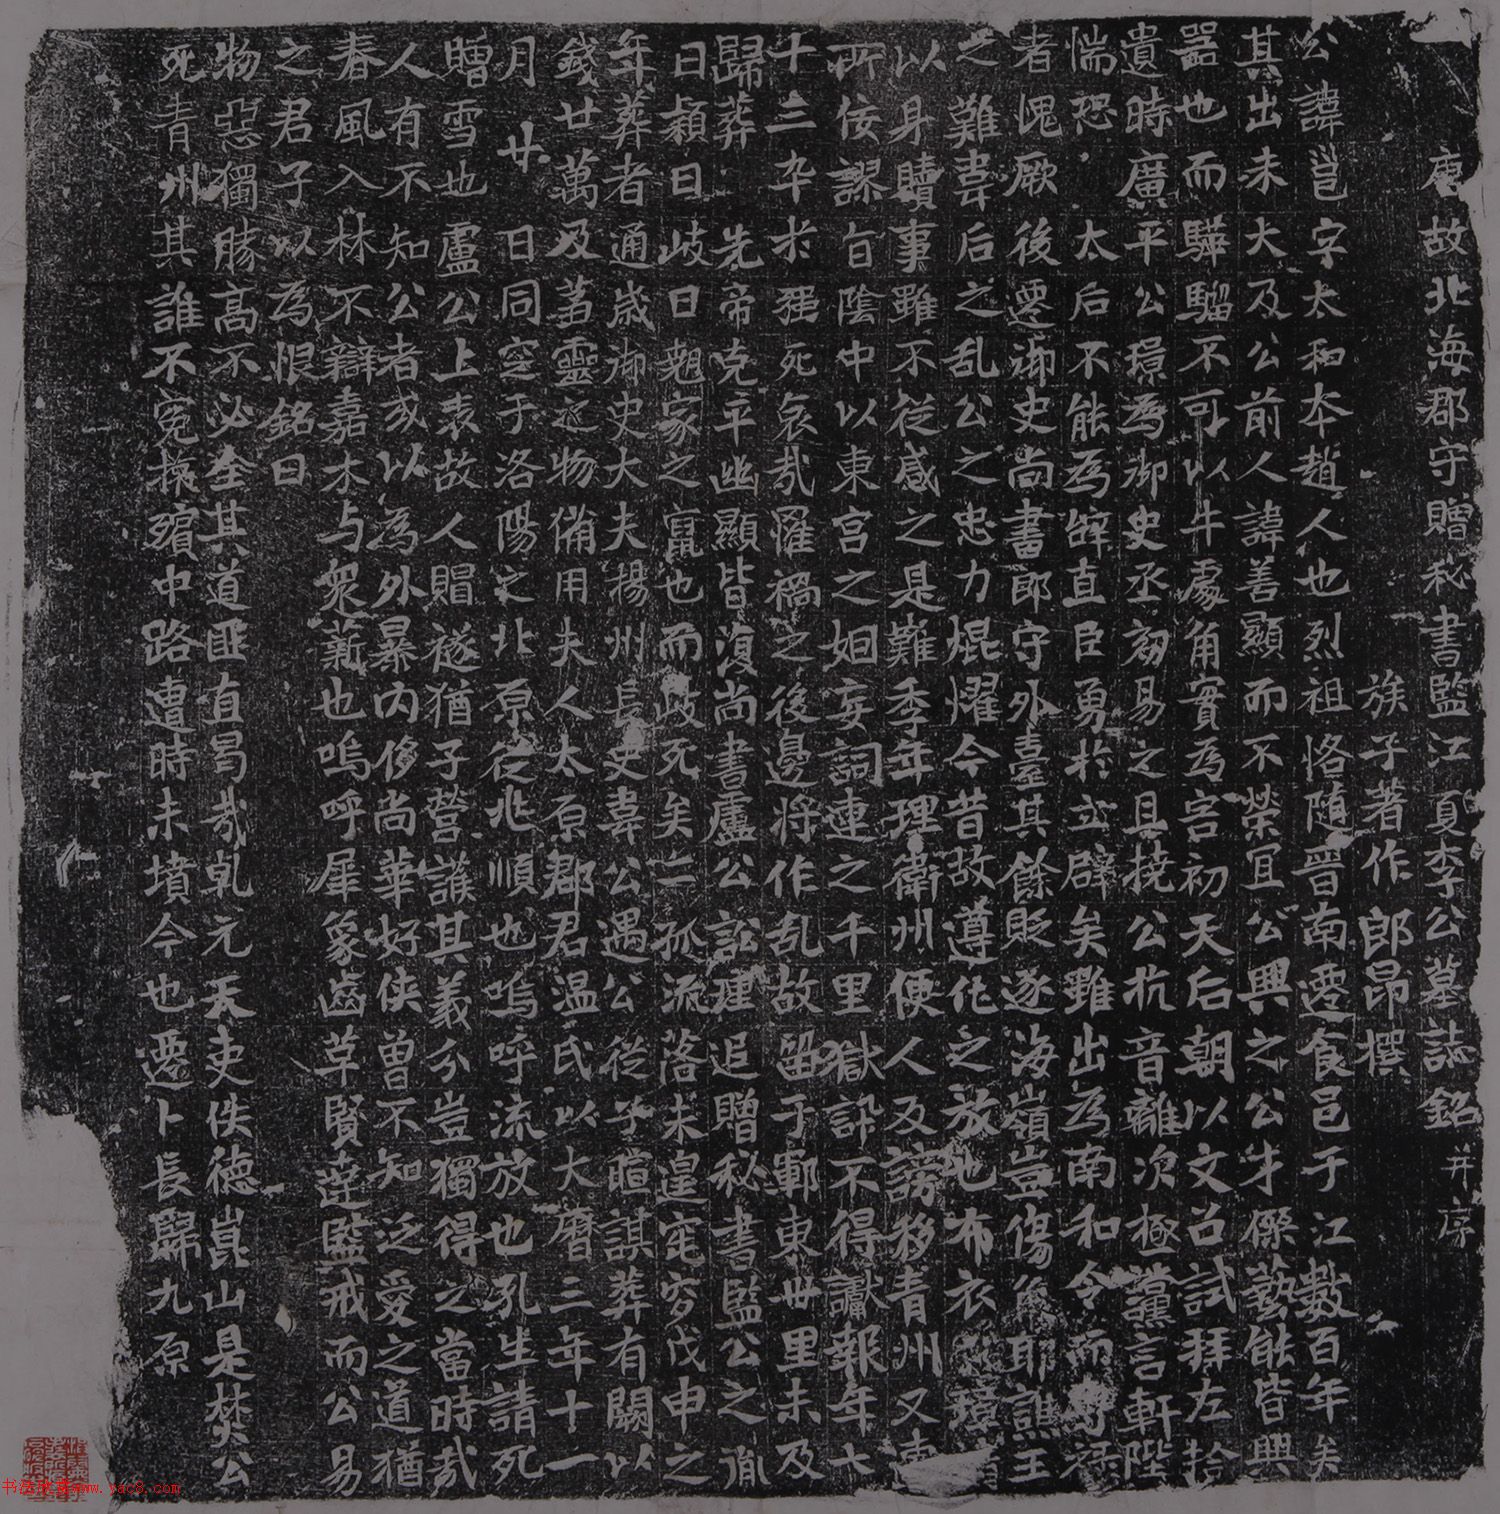 唐故北海郡守贈秘書監江夏李公墓誌銘并序
族子著作郎昂撰
公諱邕字太和本趙人也烈祖恪隨晉南遷食邑于江數百年矣
其出未大及公前人諱善顯而不榮冝公興之公才傑藝能皆興
噐也而驊騮不可以牛處角實為害初天后朝以文召試拜左拾
遺時廣平公璟為御史丞劾易之且撓公抗音離次極讜言軒陛
惴恐太后不能為辭直臣勇於立辟矣雖出為南和令而專祿
者愧厥後遷御史尚書郎守外臺其餘貶逐海嶺豈傷耶譙王
之難韋后之乱公之忠力焜燿今昔故遵化之放也布衣璋請
以身贖事雖不從感之是難季年理衛州便人及謗移青州又
所佞謬旨陰中以東宮之姻妄詞連之千里獄訊不得讞報年七
十三卒於强死哀哉羅禍之後邊將作乱故留于鄆東丗里未及
歸葬先帝克平幽顯皆復尚書盧公訟建追贈秘書監公之胤
曰頴曰岐曰翹家之竄也而歧死矣二孤流落未遑窀穸戊申之
年葬者通歲御史大夫揚州長史韋公遇公從子暄謀葬有闕以
錢廿萬及芻靈之物備用夫人太原郡君温氏以大曆三年十一
月廿日同窆于洛陽之北原從兆順也嗚呼流放也孔生請死
贈雪也盧公上表故人賵襚猶子營護其義分豈獨得之當時哉
人有不知公者或以為外暴内侈尚華好俠曾不知泛受之道猶
春風入林不辯嘉木与衆薪也嗚呼犀象齒革賢達監戒而公易
之君子以為恨銘曰
物惡獨勝高不必全其道匪直曷哉乹元天吏佚德崑山是焚公
死青州其誰不寃殯中路遭時未墳今也遷卜長歸九原
书法欣赏www.yac8.com